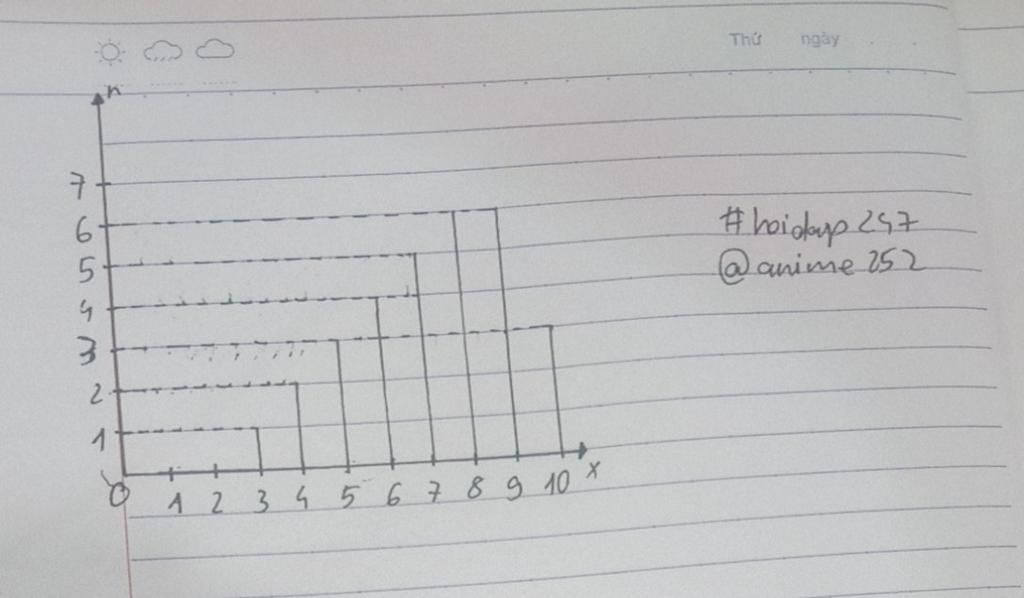 Thứ ngày
n
7
6
5
4
3
2
1
0 1 2 3 4 5 6 7 8 9 10 x
#hoidap247
@anime252